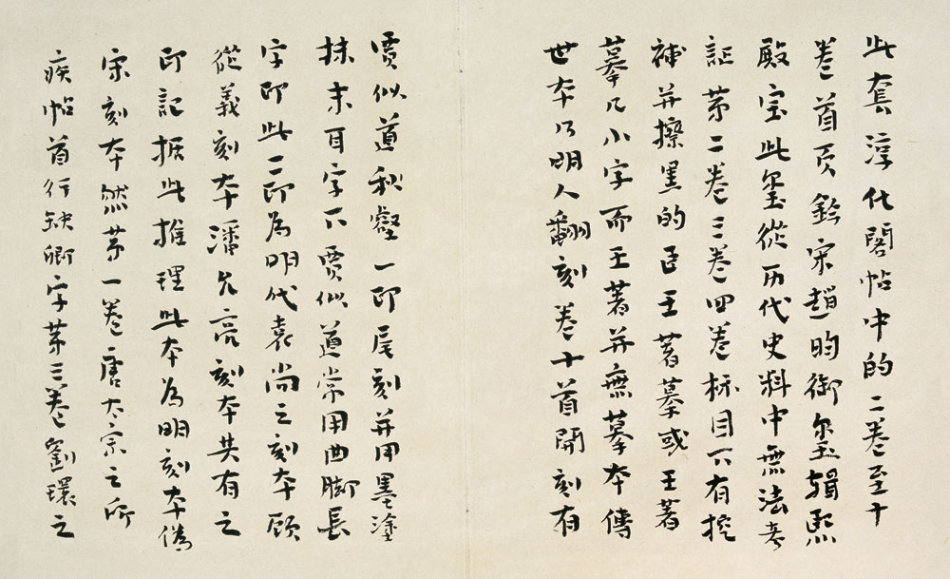 此套淳化閣帖中的二卷至十
卷首页鈐宋趙昀御玺辑熙
殿宝此玺從历代史料中無法考
証苐二卷三卷四卷标目下有挖
補并擦黑的臣王著摹或王著
摹几小字而王著并無摹本傳
世本乃明人翻刻卷十首開刻有
賈似道秋壑一印尾刻并用墨塗
抹末耳字下賈似道常用曲脚長
字印此二印為明代袁尚之刻本顾
從義刻本潘允亮刻本共有之
印記据此推理此本為明刻本偽
宋刻本然苐一卷唐太宗之所
疾帖首行缺卿字苐三卷劉環之